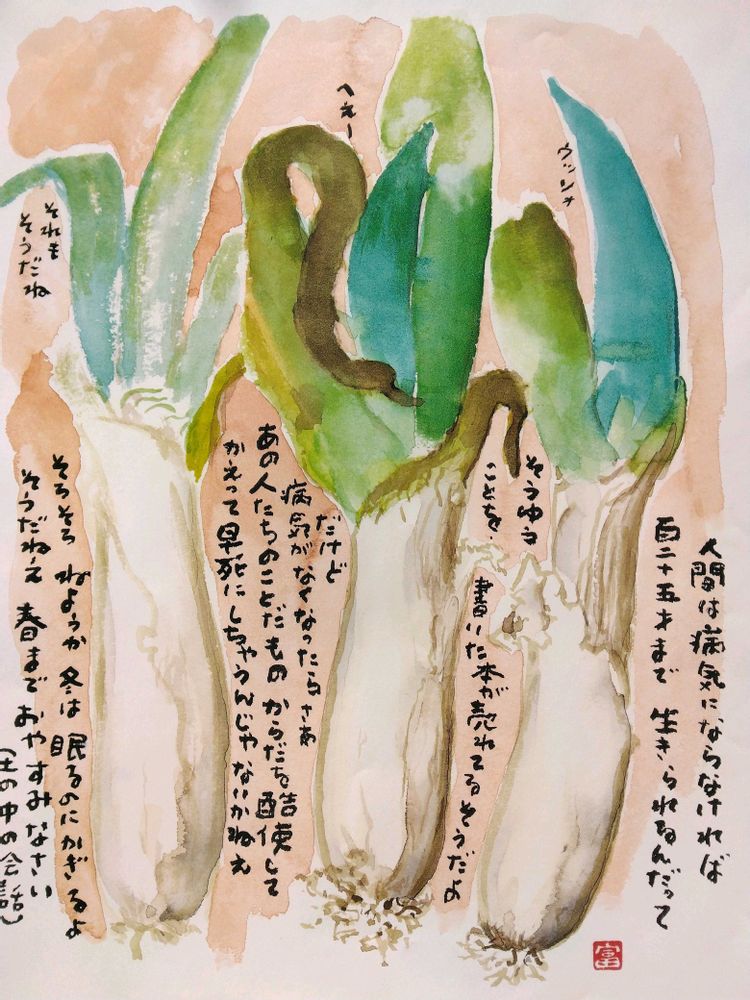 人間は病気にならなければ
百二十五才まで 生きられるんだって
ウッソォ
そうゆう
ことを、
書いた本が売れてるそうだよ
へえー
だけど
病気がなくなったらさあ
あの人たちのことだもの からだを酷使して
かえって早死にしちゃうんじゃないかねえ
それも
そうだね
そろそろ ねようか 冬は 眠るのにかぎるよ
そうだねえ 春まで おやすみなさい
(土の中の会話)
富